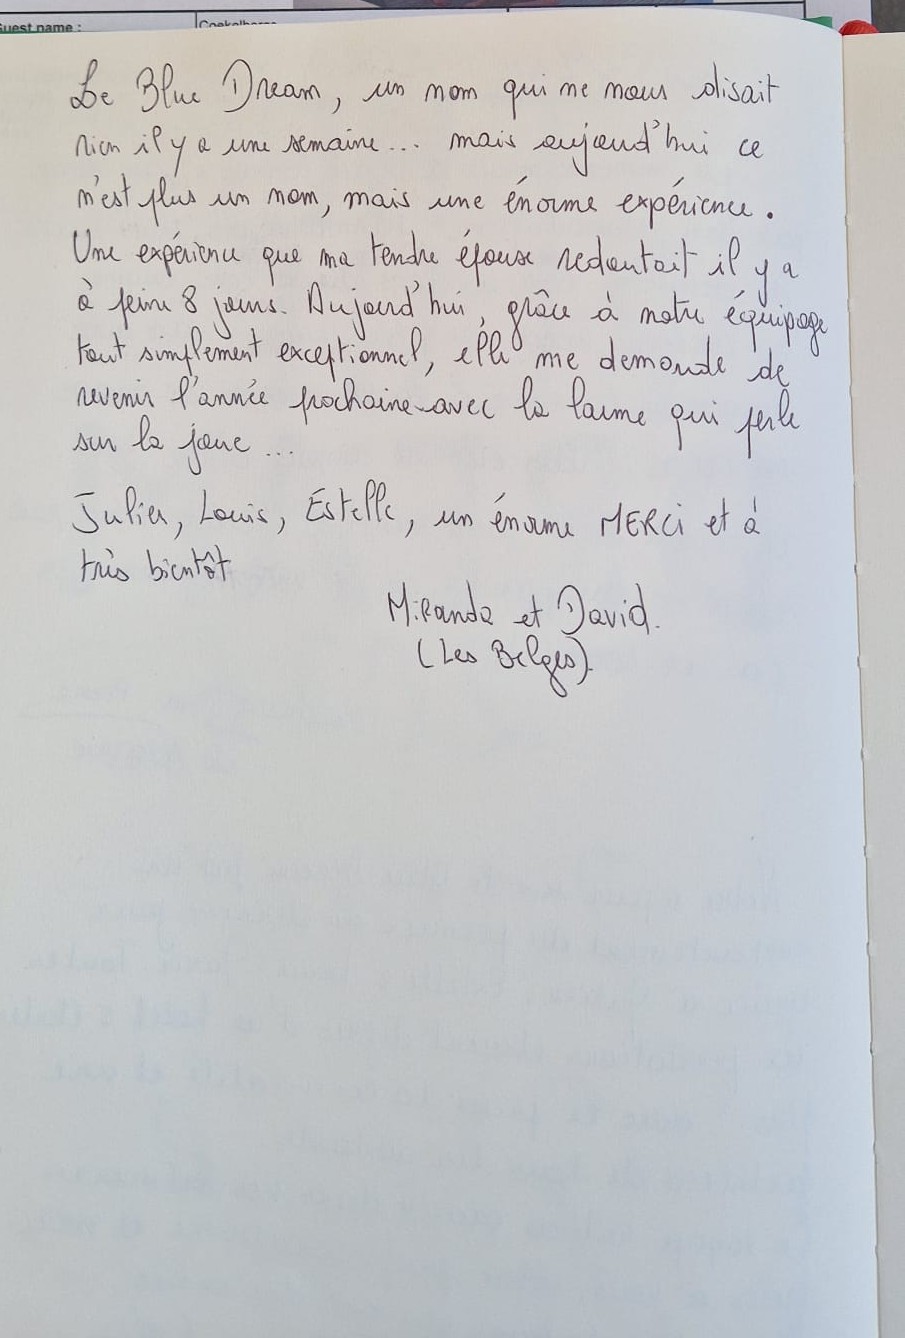 Guest name :
Le Blue Dream, un nom qui ne nous disait
rien il y a une semaine... mais aujourd'hui ce
n'est plus un nom, mais une énorme expérience.
Une expérience que ma tendre épouse redoutait il y a
à peine 8 jours. Aujourd'hui, grâce à notre équipage
tout simplement exceptionnel, elle me demande de
revenir l'année prochaine avec la larme qui perle
sur la joue...
Julien, Louis, Estelle, un énorme MERCi et à
très bientôt
Miranda et David.
(Les Belges).